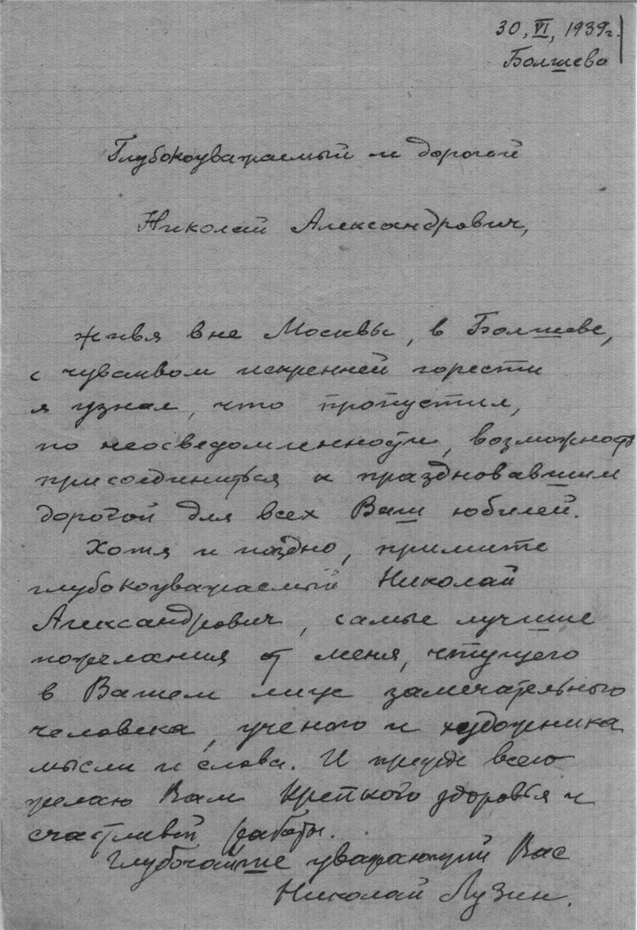 30, VI, 1939г.
Болшево
Глубокоуважаемый и дорогой
Николай Александрович,
живя вне Москвы, в Болшеве,
с чувством искренней горести
я узнал, что пропустил,
по неосведомленности, возможность
присоединиться к праздновавшим
дорогой для всех Ваш юбилей.
Хотя и поздно, примите
глубокоуважаемый Николай
Александрович, самые лучшие
пожелания от меня, чтущего
в Вашем лице замечательного
человека, ученого и художника
мысли и слова. И прежде всего
желаю Вам крепкого здоровья и
счастливой работы.
Глубочайше уважающий Вас
Николай Лузин.